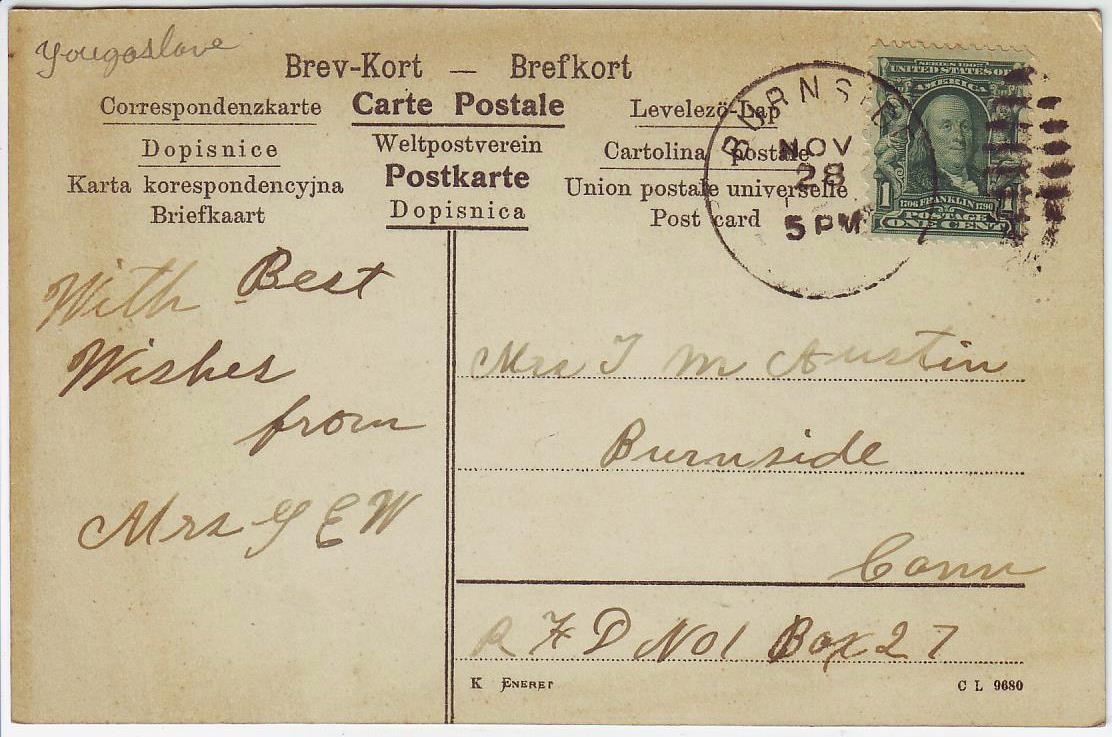 Yougoslave
Brev-Kort — Brefkort
Correspondenzkarte Carte Postale Levelezö-Lap
Dopisnice Weltpostverein Cartolina postale
Karta korespondencyjna Postkarte Union postale universelle
Briefkaart Dopisnica Post card
BURNSIDE
NOV
28
5 PM
SERIES 1902
UNITED STATES OF
AMERICA
1706 FRANKLIN 1790
1 POSTAGE 1
ONE CENT
With Best
Wishes
from
Mrs G E W
Mrs T M Austin
Burnside
Conn
R F D No1 Box 27
K ENERET
C L 9680